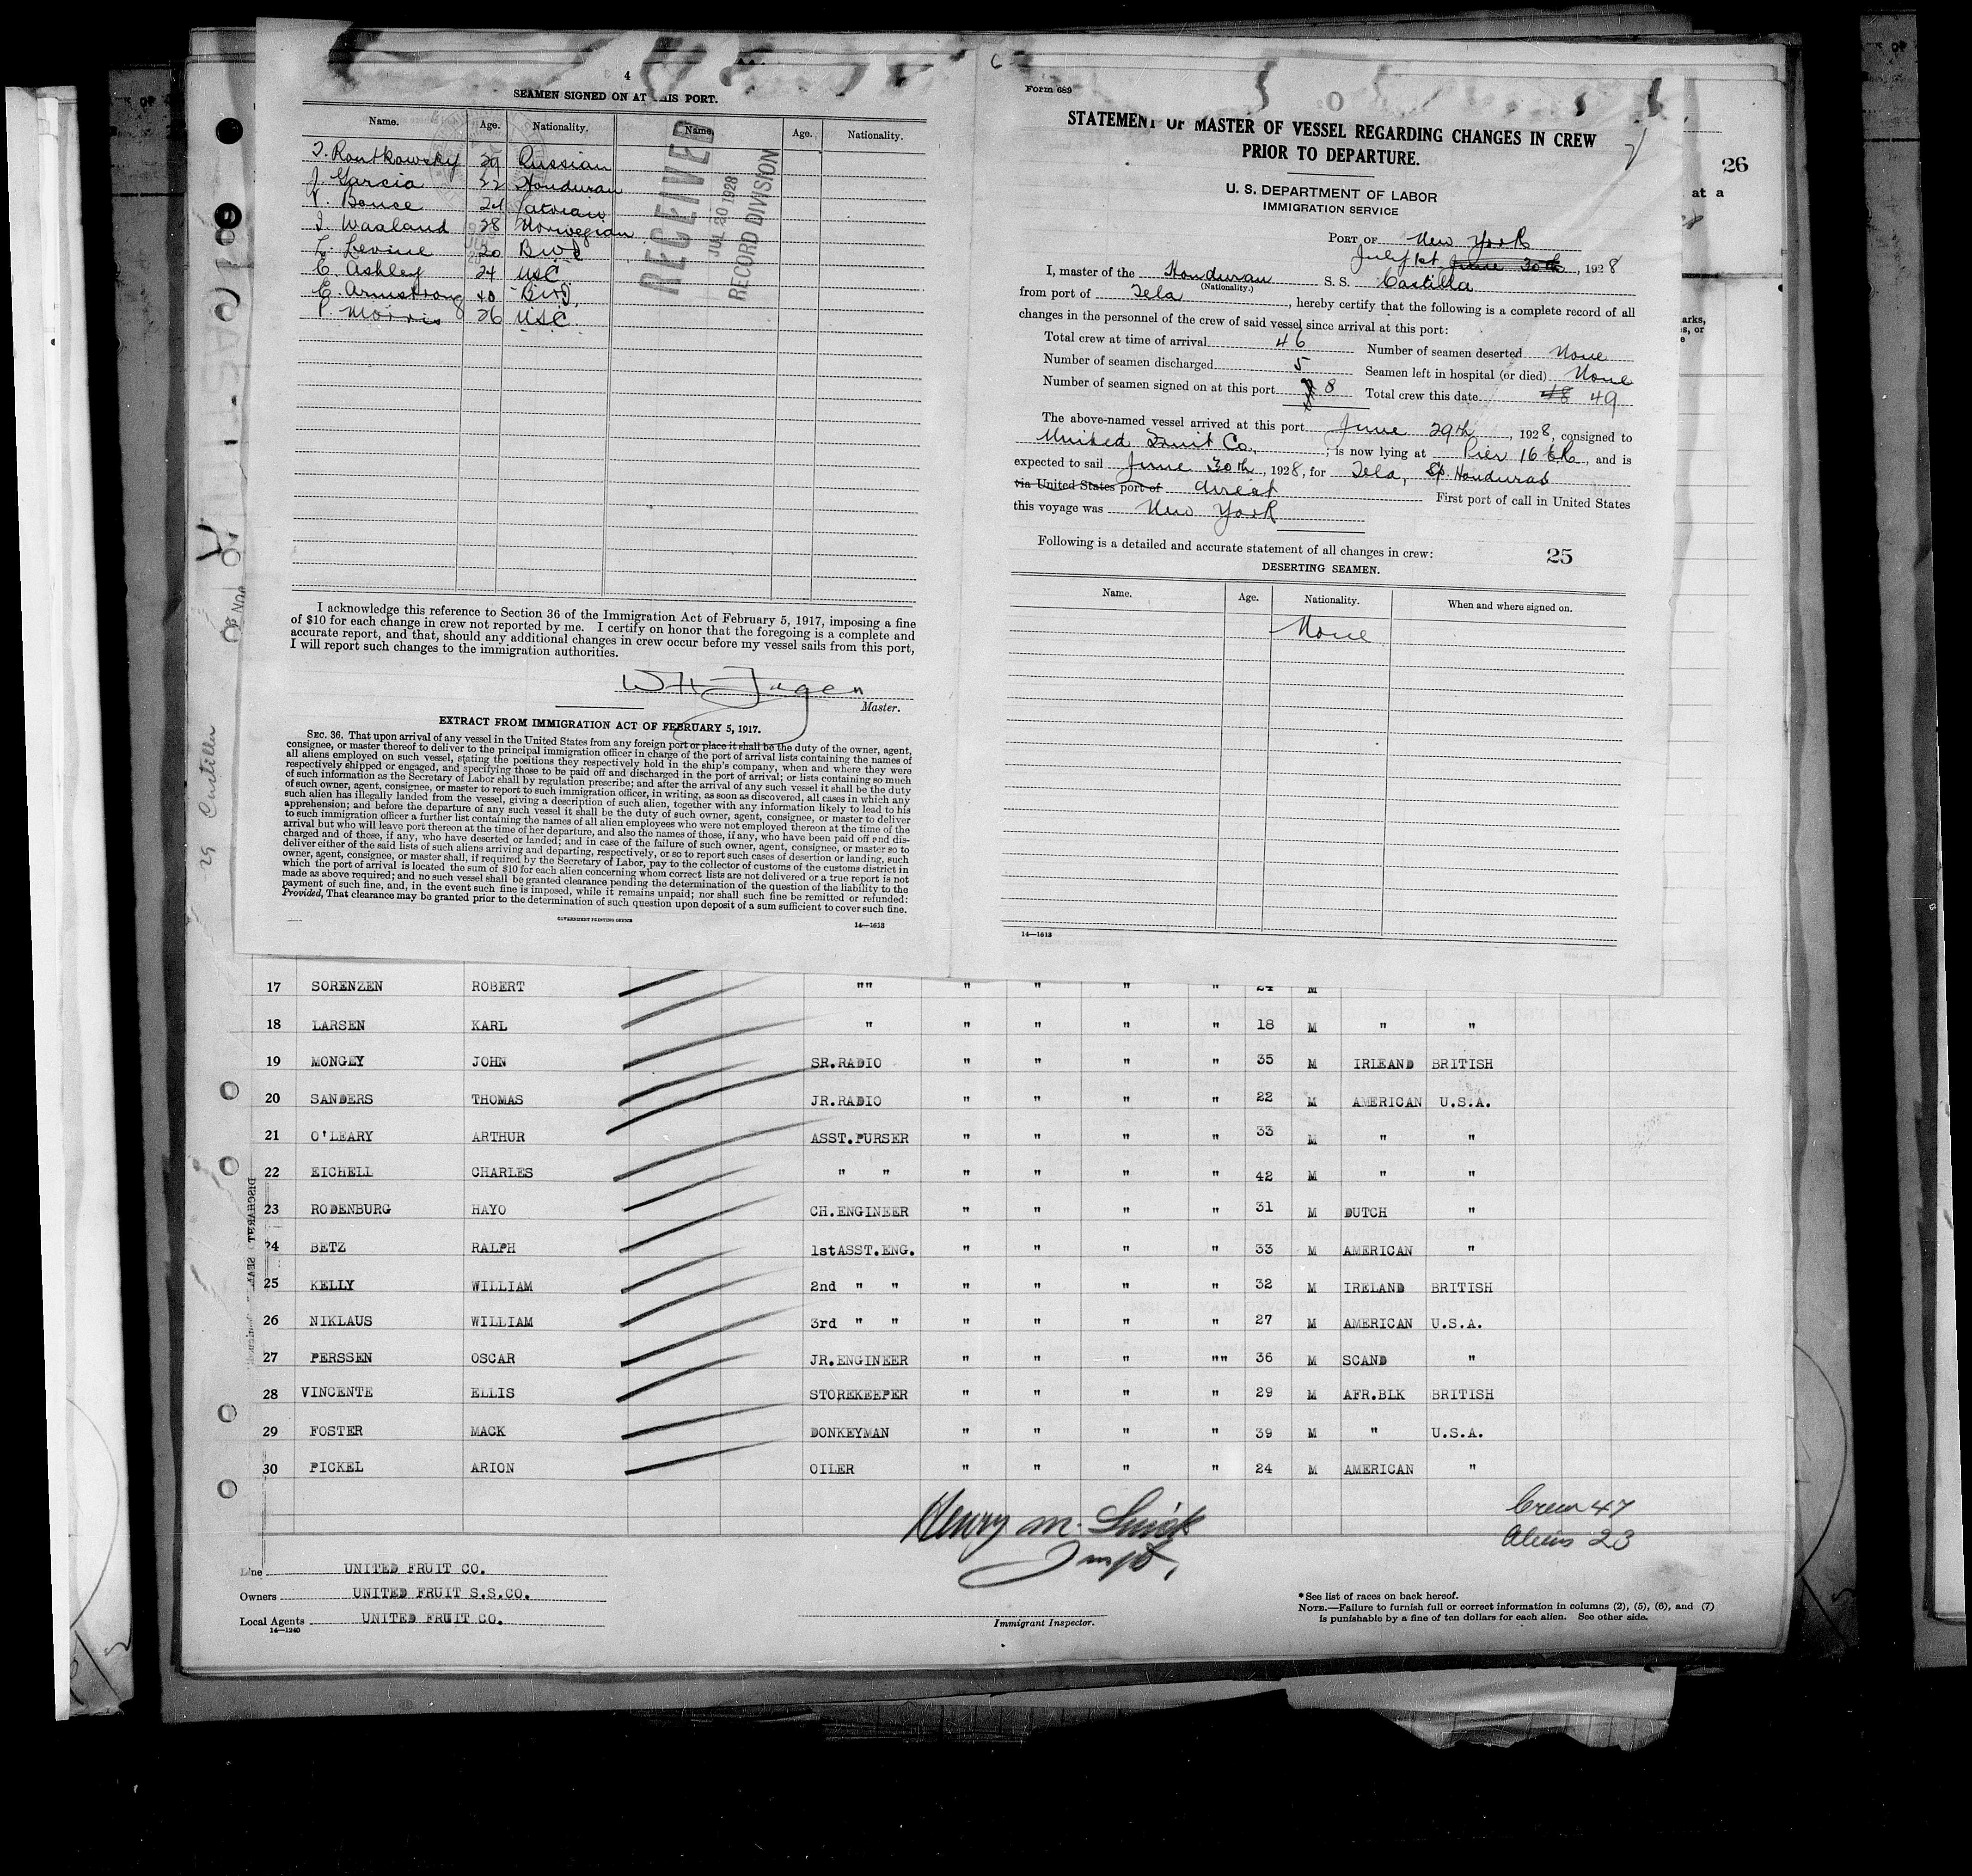 4
SEAMEN SIGNED ON AT THIS PORT.
Name. Age. Nationality. Name. Age. Nationality.
Russian
J. Garcia Honduran
24 Latvian
I. Waaland 28 Norwegian
L. Levine 20 B W I
C. Ashley 24 USC
E. Armstrong 40 B W I
P. Morris 26 USC
RECEIVED
JUL 20 1928
RECORD DIVISION
I acknowledge this reference to Section 36 of the Immigration Act of February 5, 1917, imposing a fine
of $10 for each change in crew not reported by me. I certify on honor that the foregoing is a complete and
accurate report, and that, should any additional changes in crew occur before my vessel sails from this port,
I will report such changes to the immigration authorities.
Master.
EXTRACT FROM IMMIGRATION ACT OF FEBRUARY 5, 1917.
SEC. 36. That upon arrival of any vessel in the United States from any foreign port or place it shall be the duty of the owner, agent,
consignee, or master thereof to deliver to the principal immigration officer in charge of the port of arrival lists containing the names of
all aliens employed on such vessel, stating the positions they respectively hold in the ship's company, when and where they were
respectively shipped or engaged, and specifying those to be paid off and discharged in the port of arrival; or lists containing so much
of such information as the Secretary of Labor shall by regulation prescribe; and after the arrival of any such vessel it shall be the duty
of such owner, agent, consignee, or master to report to such immigration officer, in writing, as soon as discovered, all cases in which any
such alien has illegally landed from the vessel, giving a description of such alien, together with any information likely to lead to his
apprehension; and before the departure of any such vessel it shall be the duty of such owner, agent, consignee, or master to deliver
to such immigration officer a further list containing the names of all alien employees who were not employed thereon at the time of the
arrival but who will leave port thereon at the time of her departure, and also the names of those, if any, who have been paid off and dis-
charged and of those, if any, who have deserted or landed; and in case of the failure of such owner, agent, consignee, or master so to
deliver either of the said lists of such aliens arriving and departing, respectively, or so to report such cases of desertion or landing, such
owner, agent, consignee, or master shall, if required by the Secretary of Labor, pay to the collector of customs of the customs district in
which the port of arrival is located the sum of $10 for each alien concerning whom correct lists are not delivered or a true report is not
made as above required; and no such vessel shall be granted clearance pending the determination of the question of the liability to the
payment of such fine, and, in the event such fine is imposed, while it remains unpaid; nor shall such fine be remitted or refunded:
Provided, That clearance may be granted prior to the determination of such question upon deposit of a sum sufficient to cover such fine.
GOVERNMENT PRINTING OFFICE
14—1613
Form 689
STATEMENT OF MASTER OF VESSEL REGARDING CHANGES IN CREW
PRIOR TO DEPARTURE.
U. S. DEPARTMENT OF LABOR
IMMIGRATION SERVICE
PORT OF New York
July 1st June 30th, 1928
I, master of the Honduran S. S. Castilla
(Nationality.)
from port of Tela, hereby certify that the following is a complete record of all
changes in the personnel of the crew of said vessel since arrival at this port:
Total crew at time of arrival 46 Number of seamen deserted None
Number of seamen discharged 5 Seamen left in hospital (or died) None
Number of seamen signed on at this port 8 Total crew this date 48 49
The above-named vessel arrived at this port June 29th, 1928, consigned to
United Fruit Co., ; is now lying at Pier 16 ER, and is
expected to sail June 30th, 1928, for Tela, Sp. Honduras
via United States port of direct First port of call in United States
this voyage was New York
Following is a detailed and accurate statement of all changes in crew: 25
DESERTING SEAMEN.
Name. Age. Nationality. When and where signed on.
None
14—1613
26
at a
17 SORENZEN ROBERT "" " " " " 24 M
18 LARSEN KARL " " " " " 18 M " "
19 MONGEY JOHN SR.RADIO " " " " 35 M IRLEAND BRITISH
20 SANDERS THOMAS JR.RADIO " " " " 22 M AMERICAN U.S.A.
21 O'LEARY ARTHUR ASST.PURSER " " " " 33 M " "
22 EICHELL CHARLES " " " " " " 42 M " "
23 RODENBURG HAYO CH.ENGINEER " " " " 31 M DUTCH "
24 BETZ RALPH 1stASST.ENG. " " " " 33 M AMERICAN "
25 KELLY WILLIAM 2nd " " " " " " 32 M IRELAND BRITISH
26 NIKLAUS WILLIAM 3rd " " " " " " 27 M AMERICAN U.S.A.
27 PERSSEN OSCAR JR.ENGINEER " " " "" 36 M SCAND "
28 VINCENTE ELLIS STOREKEEPER " " " " 29 M AFR.BLK BRITISH
29 FOSTER MACK DONKEYMAN " " " " 39 M " U.S.A.
30 PICKEL ARION OILER " " " " 24 M AMERICAN "
Crew 47
Aliens 23
Henry M.
Line UNITED FRUIT CO.
Owners UNITED FRUIT S.S.CO.
Local Agents UNITED FRUIT CO.
14—1240
Immigrant Inspector.
*See list of races on back hereof.
NOTE.—Failure to furnish full or correct information in columns (2), (5), (6), and (7)
is punishable by a fine of ten dollars for each alien. See other side.